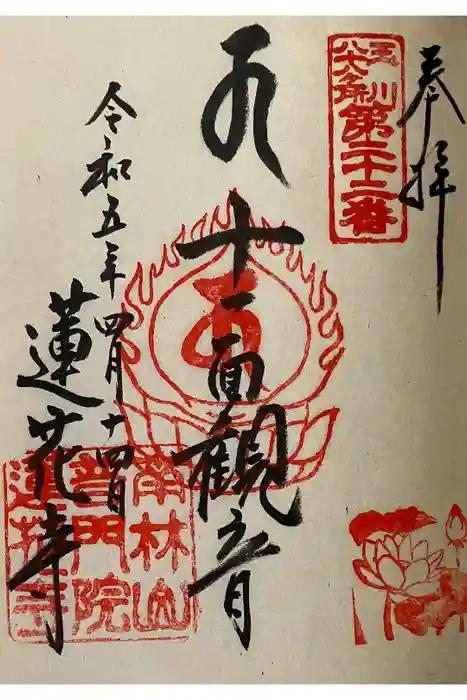 奉拝
第二十二番
十一面観音
令和五年四月十四日
蓮花寺
南林山
普門院
蓮花寺